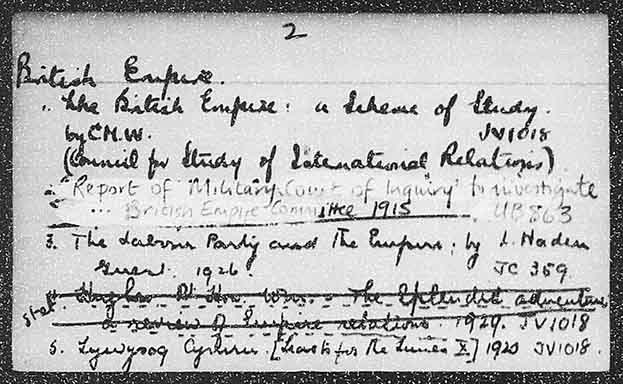 2
British Empire.
1. The British Empire: a Scheme of Study.
by C.M.W. JV1018
(Council for Study of International Relations)
2. "Report of "Military Court of Inquiry" to investigate
... British Empire Committee 1915 UB863
3. The Labour Party and The Empire; by L. Haden
Guest. 1926. JC 359
Hughes Rt Hon. Wm. - The Splendid adventure
a review of Empire relations. 1929. JV1018
5. Tywysog Cymru. [ for the 1920 JV1018.